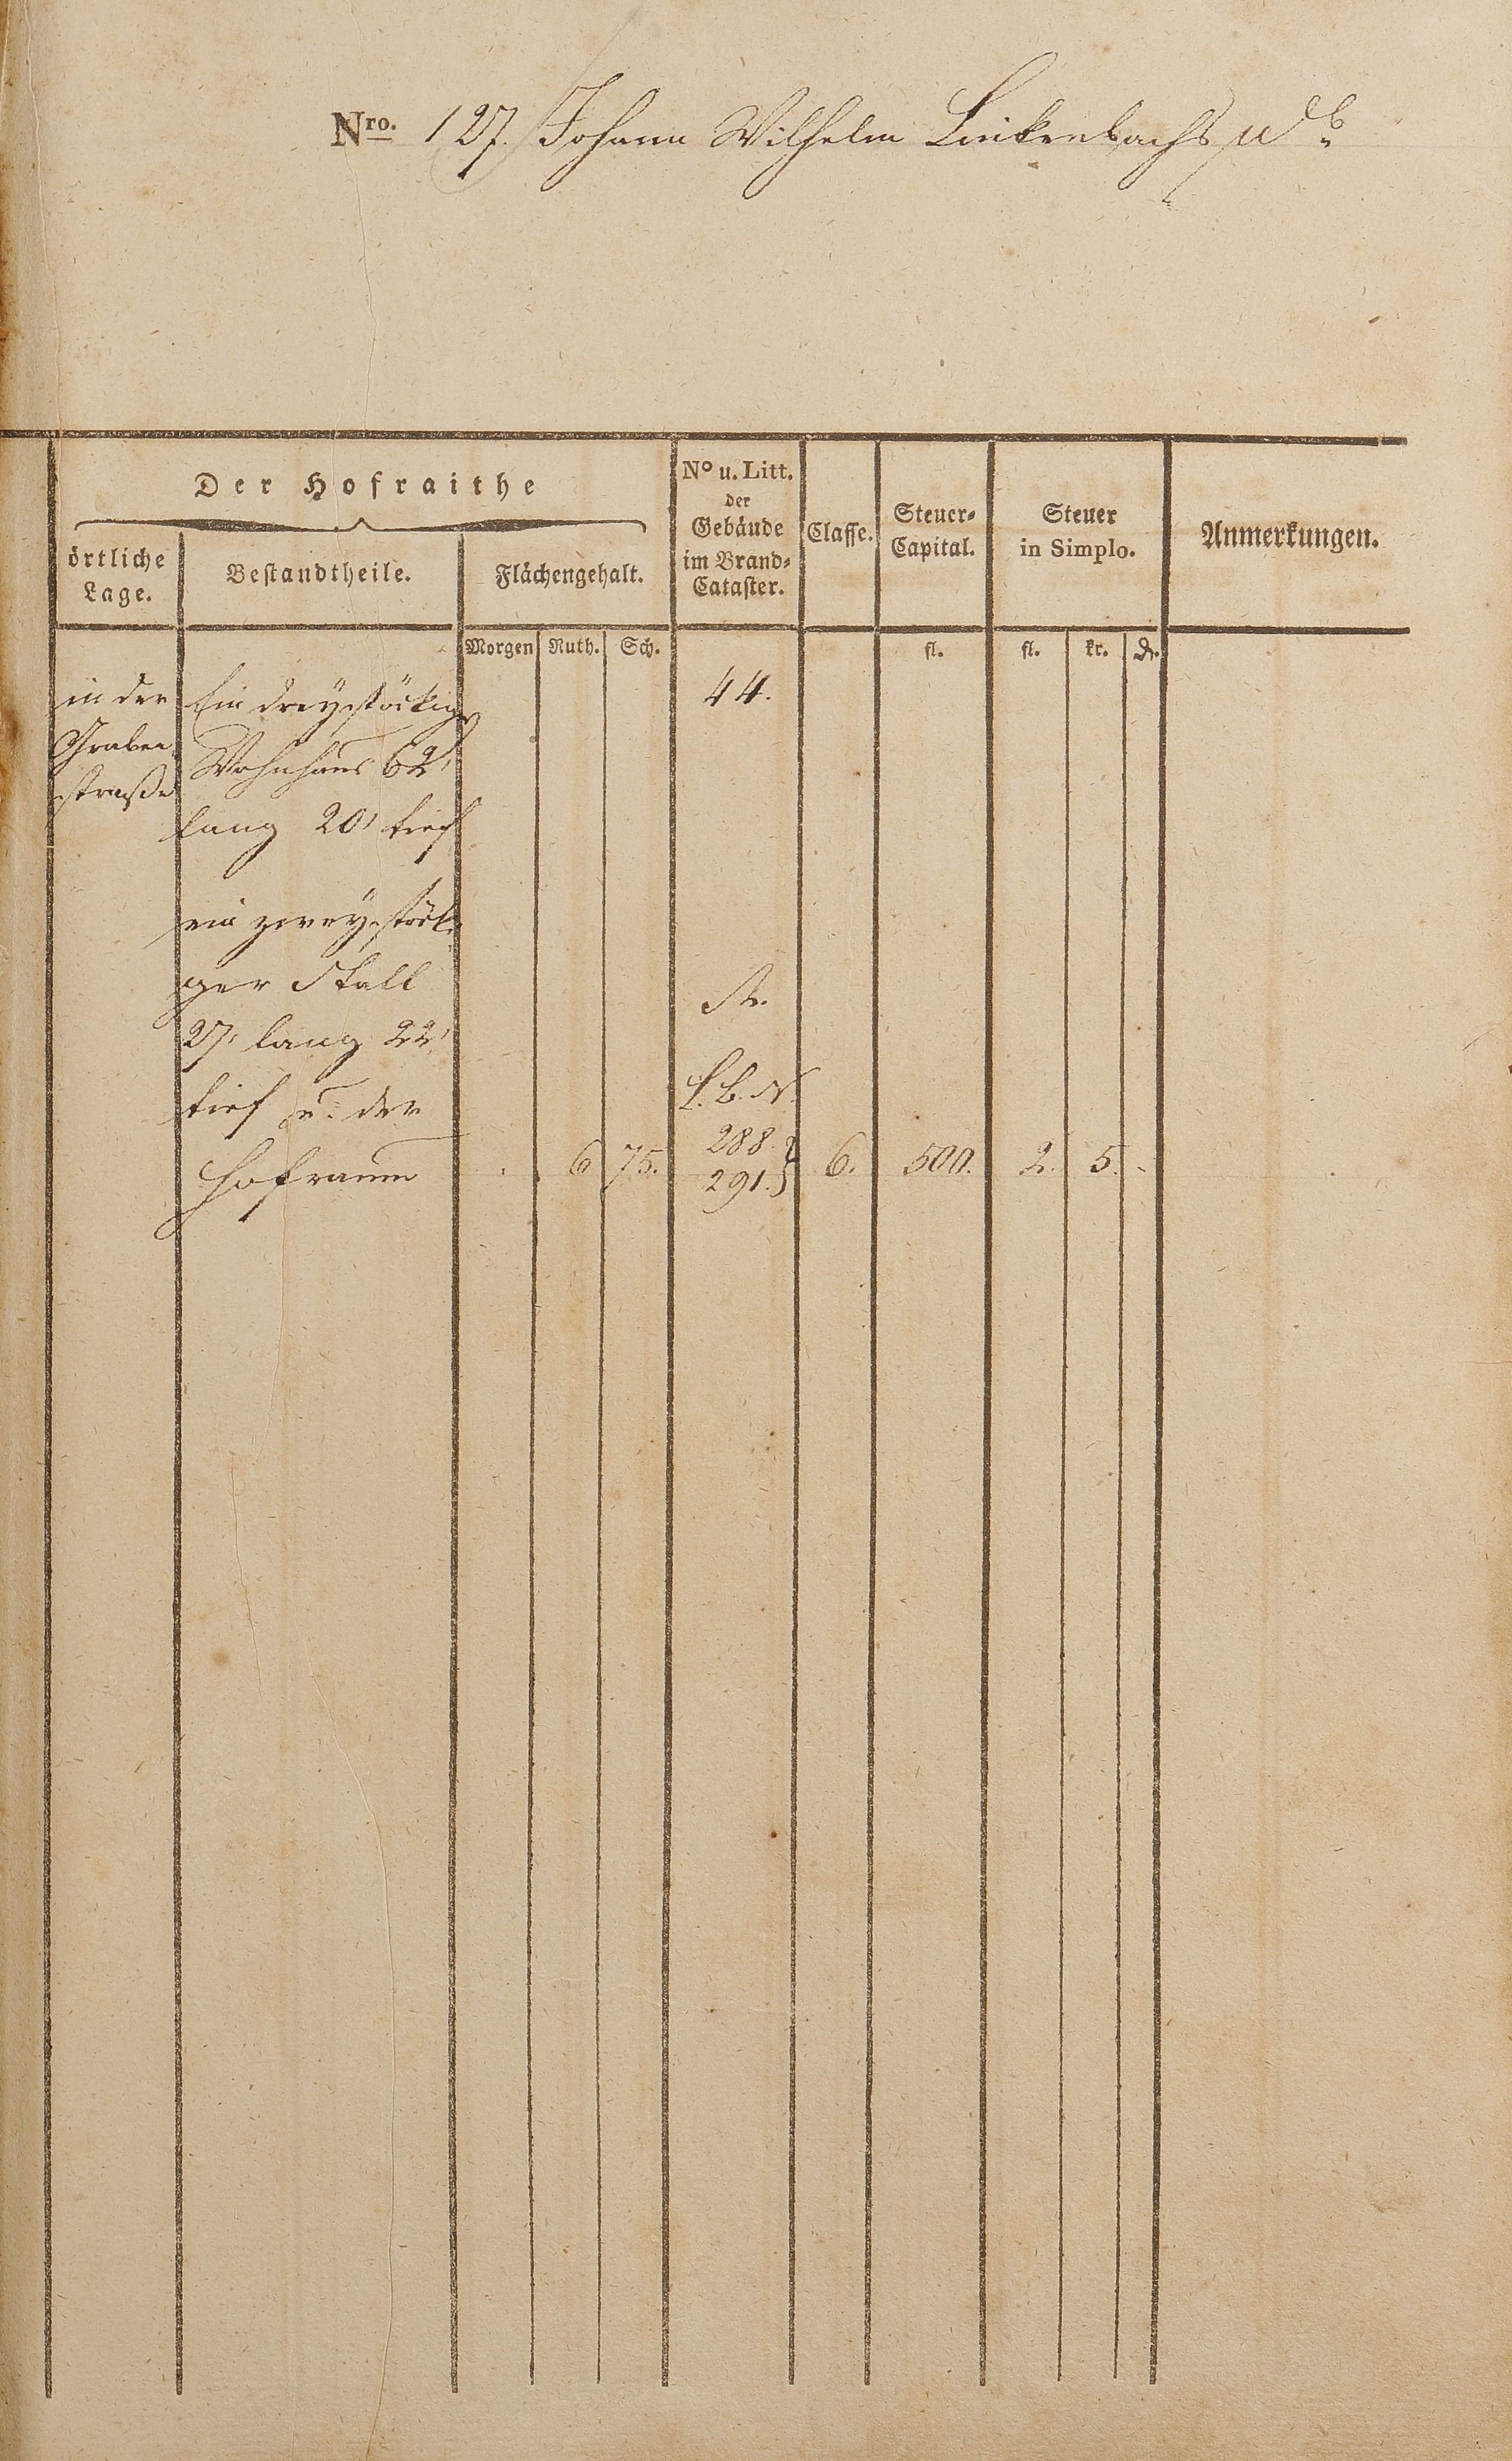 Nro. 127. Johann Wilhelm Linkenbachs
Der Hofraithe
örtliche Lage.
Bestandtheile.
Flächengehalt.
No u. Litt. der Gebäude im Brand-Cataster.
Classe.
Steuer-Capital.
Steuer in Simplo.
Anmerkungen.
Morgen Ruth. Sch. fl. fl. kr. ₰.
in der
Graben
straße
Ein dreystöckiges
Wohnhaus 62'
lang 20' tief
44.
ein zweystöcki
ger Stall
27' lang 22'
tief u. der
Hofraum
St.
L. B. N.
288.
291.
6 75. 6. 500. 2. 5. -